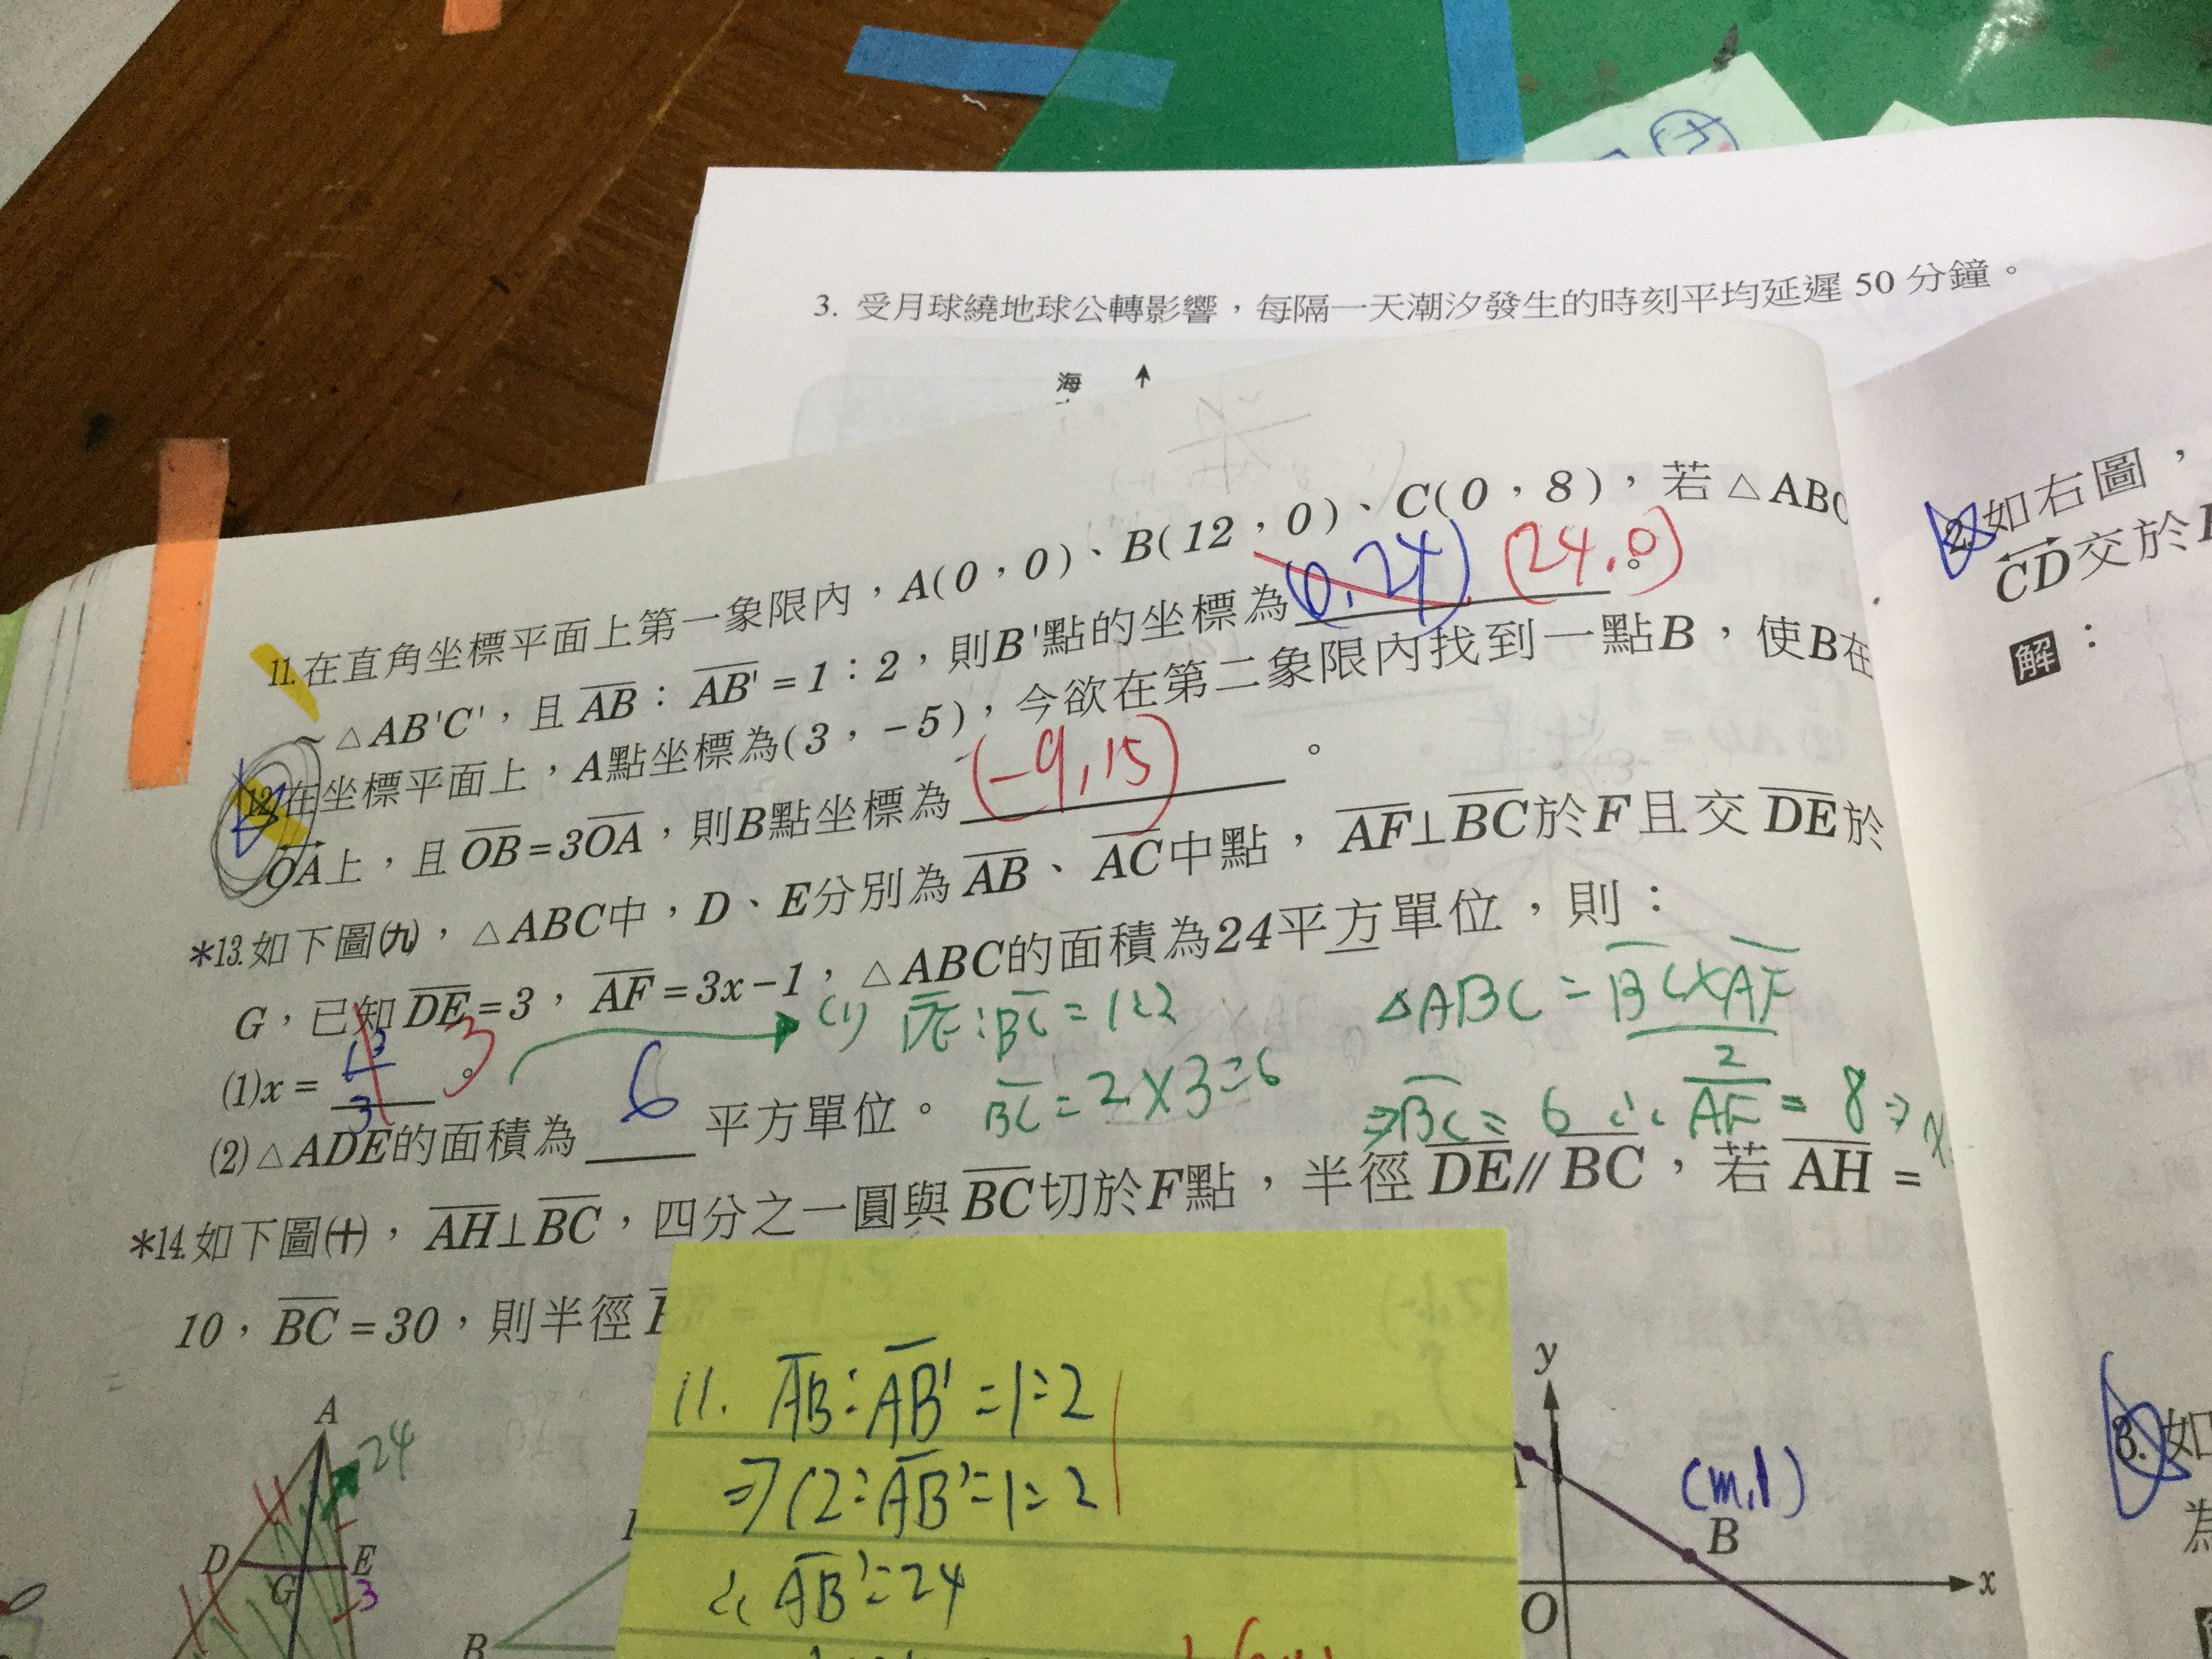 3. 受月球繞地球公轉影響，每隔一天潮汐發生的時刻平均延遲 50 分鐘。
海
11.在直角坐標平面上第一象限內，A(0，0)、B(12，0)、C(0，8)，若△ABC
~△AB'C'，且AB：AB'=1：2，則B'點的坐標為(0,24) (24,0)。
12.在坐標平面上，A點坐標為(3，-5)，今欲在第二象限內找到一點B，使B在
OA上，且OB=3OA，則B點坐標為(-9,15)。
*13.如下圖(九)，△ABC中，D、E分別為AB、AC中點，AF⊥BC於F且交DE於
G，已知DE=3，AF=3x-1，△ABC的面積為24平方單位，則：
(1)x= 13/3 。 3
(1) DE:BC=1:2
△ABC=BC×AF/2
(2)△ADE的面積為 6 平方單位。
BC=2×3=6
⇒BC=6 ∴AF=8⇒x
*14.如下圖(十)，AH⊥BC，四分之一圓與BC切於F點，半徑DE//BC，若AH=
10，BC=30，則半徑
11. AB:AB'=1:2
⇒12:AB'=1:2
∴AB'=24
A
24
D
G
E
3
B
y
(m,1)
B
x
O
2.如右圖，
CD交於
解：
3.如
為